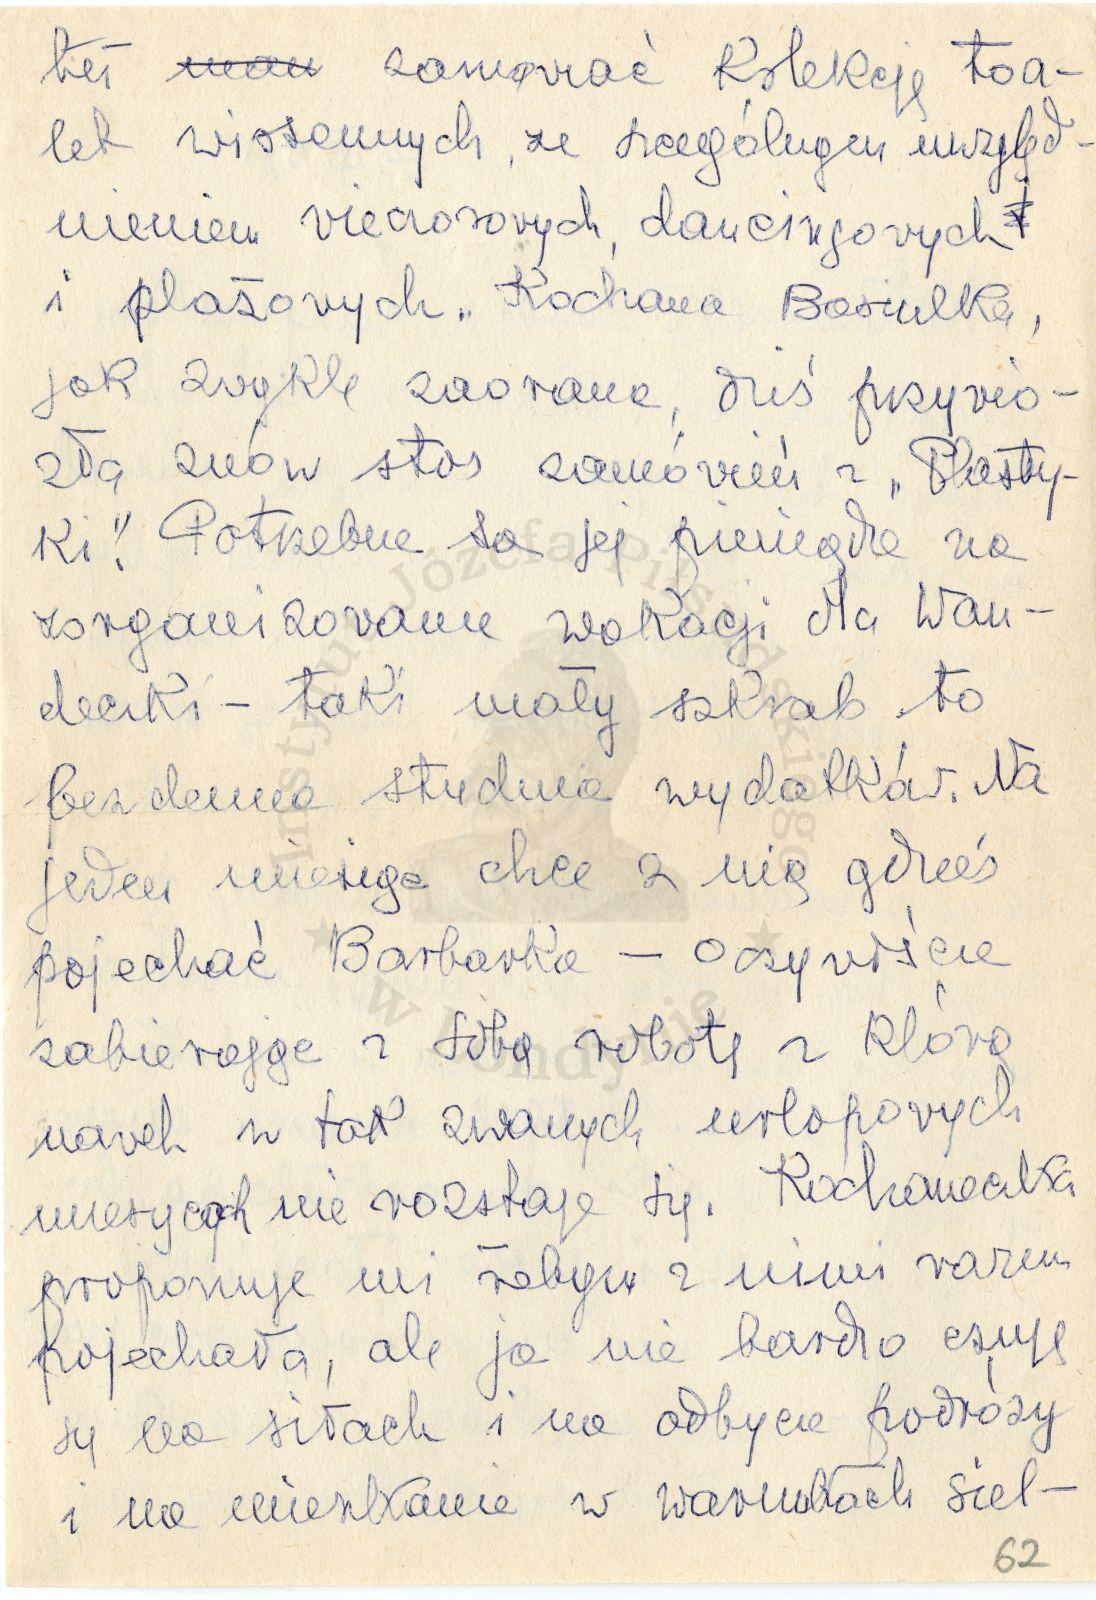 też man zamawiać kolekcję toa-
let wiosennych, ze szczególnym uwzględ-
nieniem wieczorowych, dancingowych
i plażowych. Kochana Basiulka,
jak zwykle zaorana, dziś przywio-
zła znów stos zamówień z „Plasty-
ki". Potrzebne są jej pieniądze na
zorganizowanie wakacji dla Wan-
deczki – taki mały szkrab to
bezdenna studnia wydatków. Na
jeden miesiąc chce z nią gdzieś
pojechać Barbarka – oczywiście
zabierając z sobą robotę z którą
nawet w tak zwanych urlopowych
miesiącach nie rozstaje się. Kochaneczka
proponuje mi żebym z nimi razem
pojechała, ale ja nie bardzo czuję
się na siłach i na odbycie podróży
i na mieszkanie w warunkach siel-
62
Instytut Józefa Piłsudskiego
w Londynie